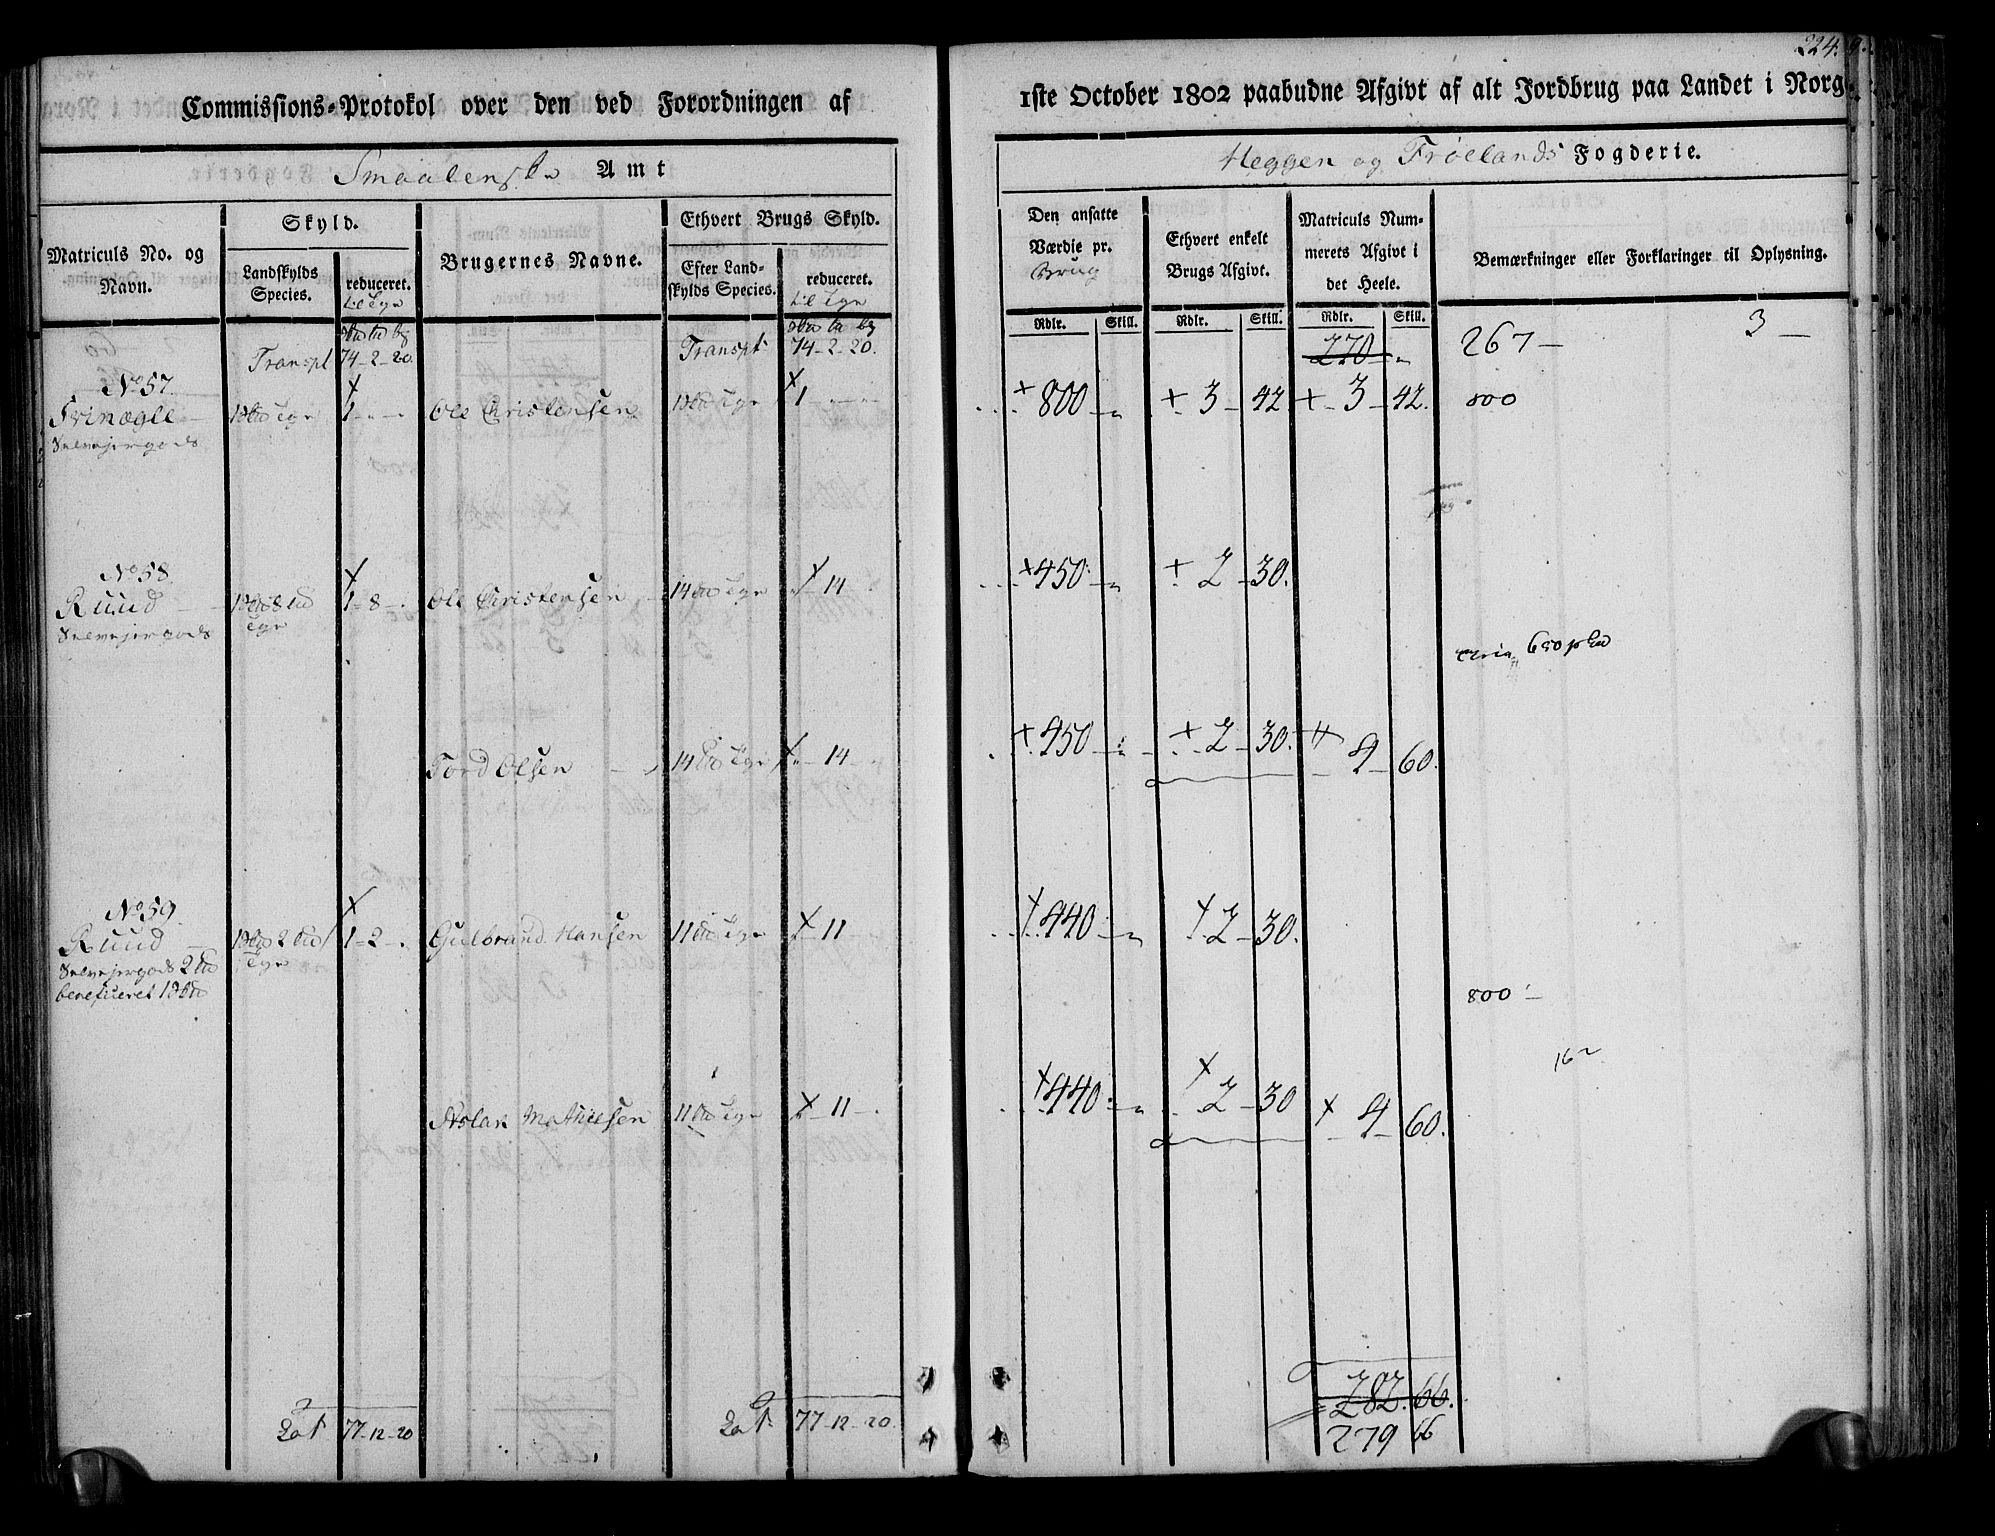 224.
Commissions-Protokol over den ved Forordningen af 1ste October 1802 paabudne Afgivt af alt Jordbrug paa Landet i Norg
Smaalenske Amt
Heggen og Frøelands Fogderie.
Matriculs No. og Navn.
Skyld.
Landskylds Species.
reduceret. til Tgr
Brugernes Navne.
Ethvert Brugs Skyld.
Efter Landskylds Species.
reduceret. til Tgr
Den ansatte Værdie pr. Brug
Ethvert enkelt Brugs Afgivt.
Matriculs Nummerets Afgivt i det Heele.
Bemærkninger eller Forklaringer til Oplysning.
Rdlr. Skill. Rdlr. Skill. Rdlr. Skill.
Transpt 74-2-20. Transpt 74-2-20. 270 267 — 3 —
No 57.
Svinægle 1 Ole Christensen 1 800 3 42 3 42. 800
Selvejergods
No 58.
Ruud 1-8 Ole Christensen 14 450 2 30.
Selvejergods
650
Tord Olsen 14 450 2 30. 4 60.
No 59.
Ruud 1-2 Gulbrand Hansen 11 440 2 30.
Selvejergods 2
beneficeret 1
800 —
16
Aslak Mathiesen 11 440 2 30 4 60.
282. 66.
Lat 77-12-20 Lat 77-12-20. 279 66